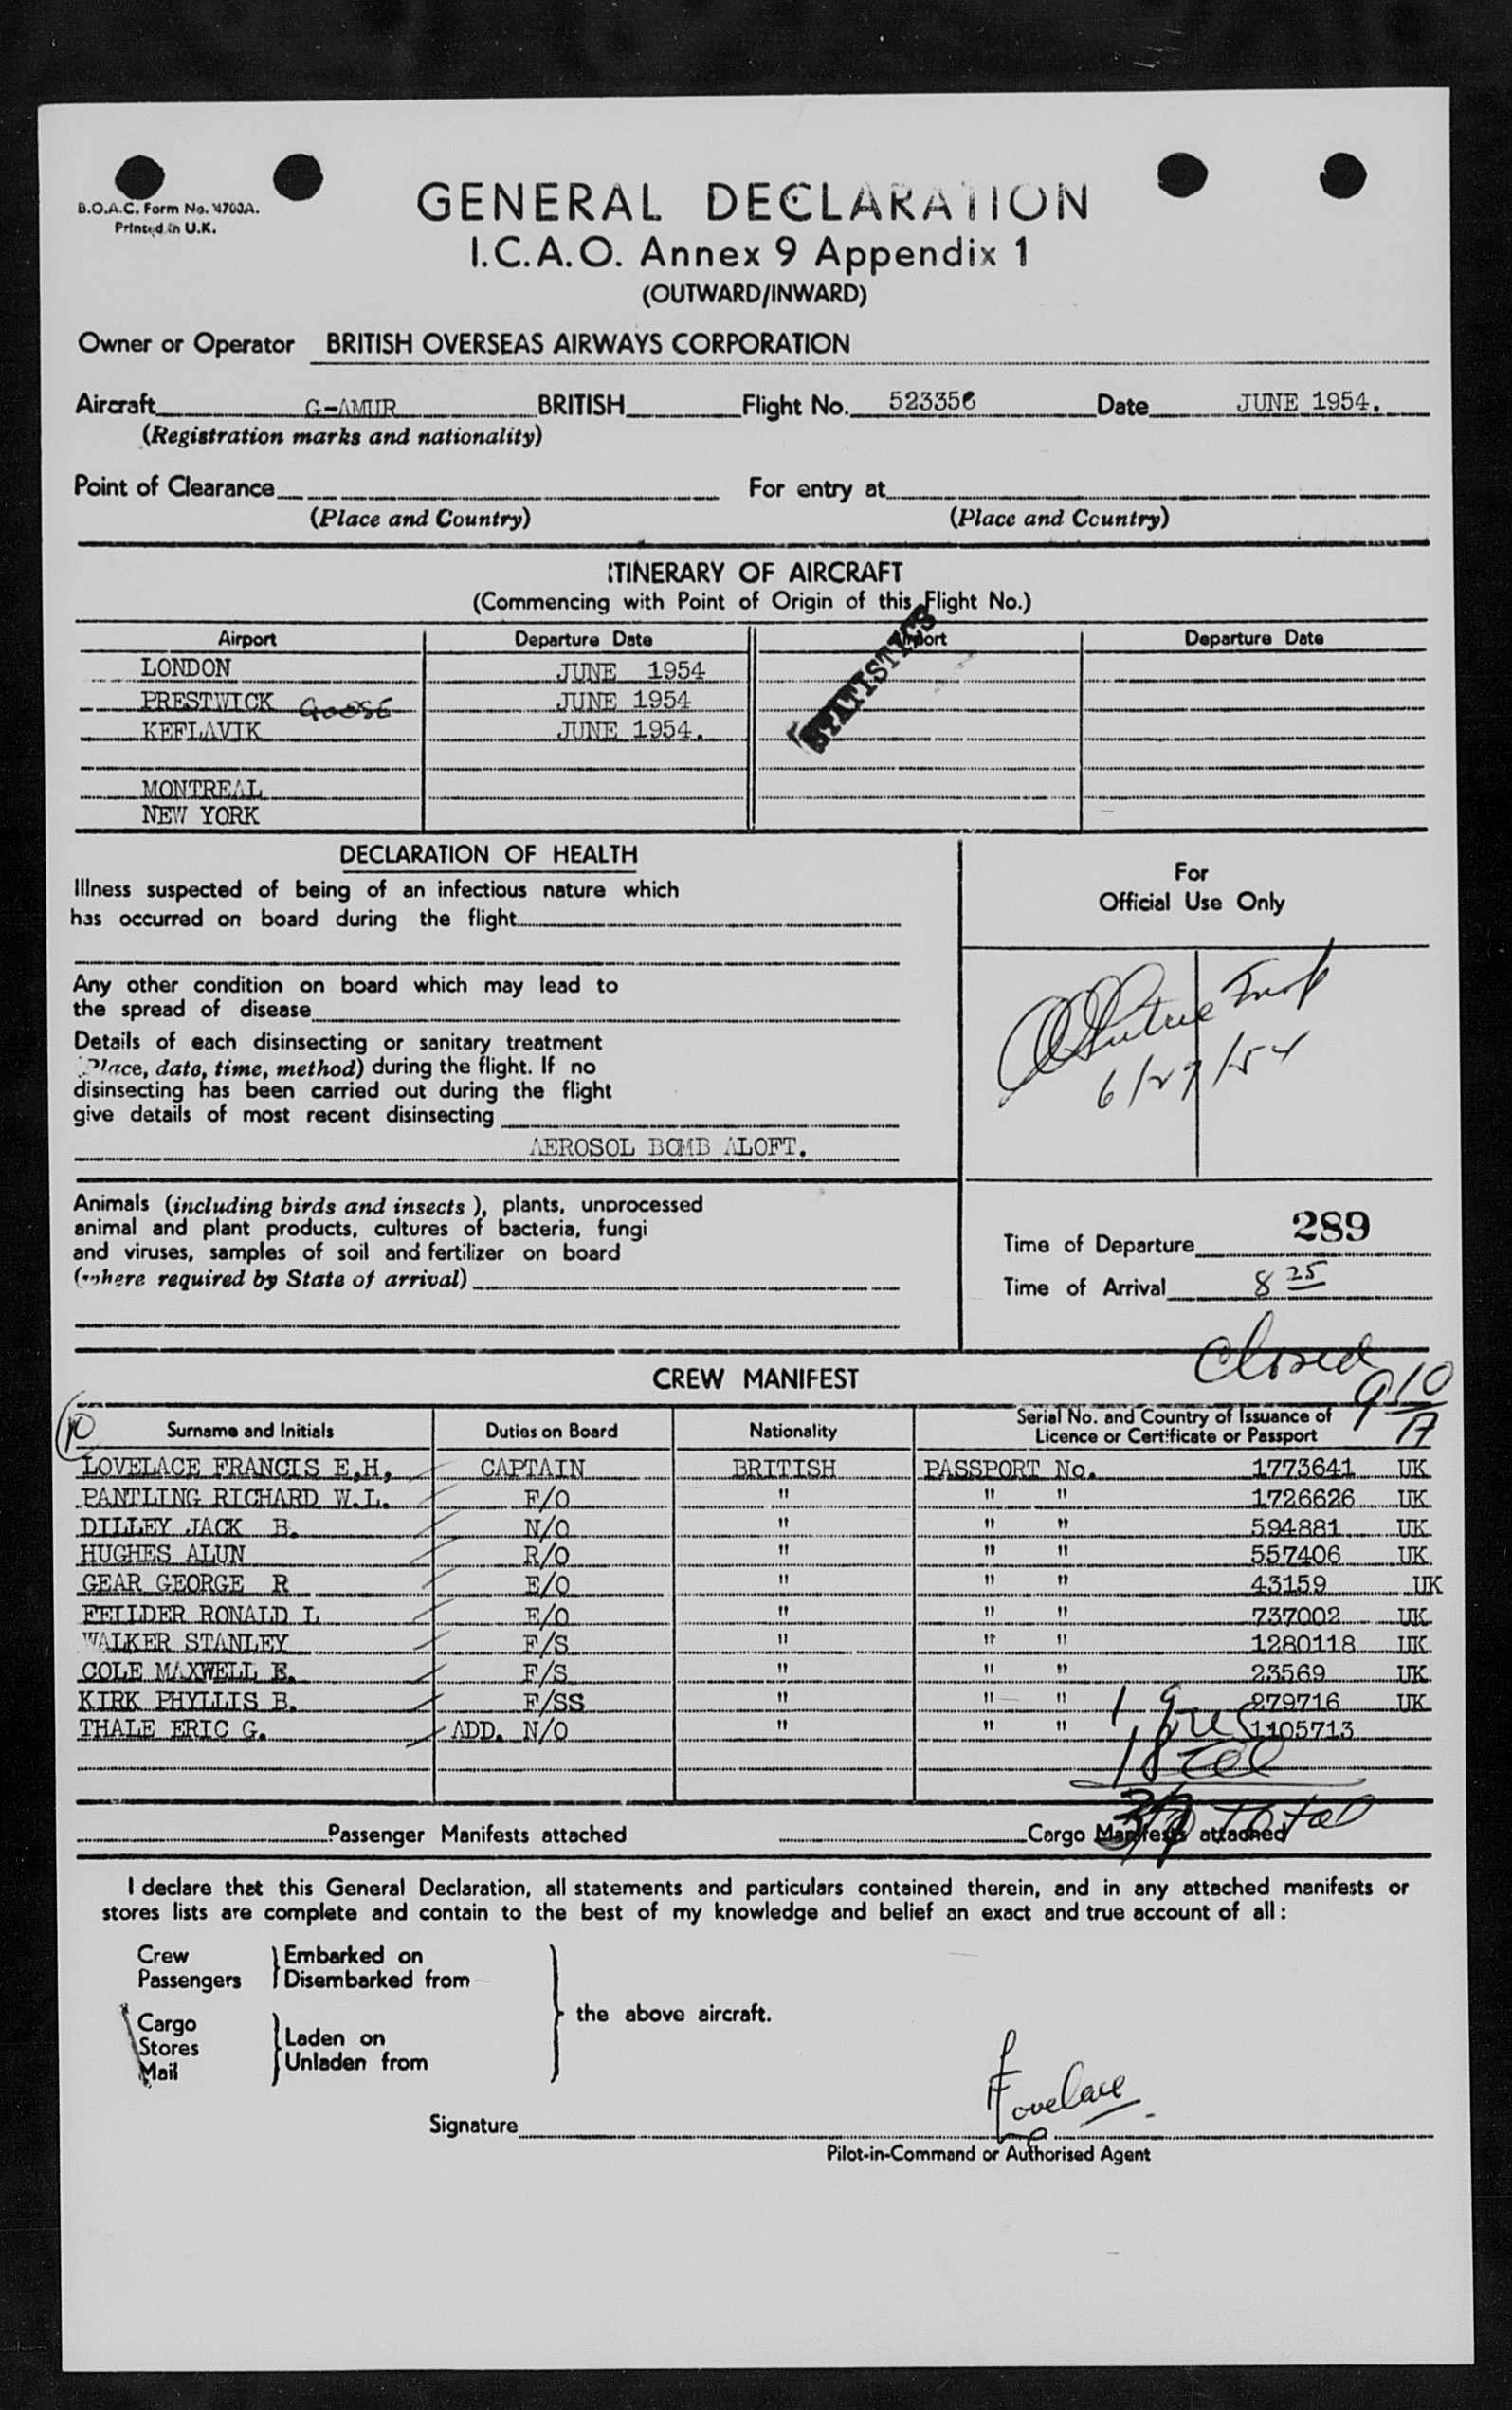 B.O.A.C. Form No. 4700A.
Printed in U.K.
GENERAL DECLARATION
I.C.A.O. Annex 9 Appendix 1
(OUTWARD/INWARD)
Owner or Operator BRITISH OVERSEAS AIRWAYS CORPORATION
Aircraft G-AMUR BRITISH Flight No. 523356 Date JUNE 1954.
(Registration marks and nationality)
Point of Clearance For entry at
(Place and Country) (Place and Country)
ITINERARY OF AIRCRAFT
(Commencing with Point of Origin of this Flight No.)
STATISTICS
Airport Departure Date Airport Departure Date
LONDON JUNE 1954
PRESTWICK GOOSE JUNE 1954
KEFLAVIK JUNE 1954.
MONTREAL
NEW YORK
DECLARATION OF HEALTH
Illness suspected of being of an infectious nature which
has occurred on board during the flight
Any other condition on board which may lead to
the spread of disease
Details of each disinsecting or sanitary treatment
(Place, date, time, method) during the flight. If no
disinsecting has been carried out during the flight
give details of most recent disinsecting
AEROSOL BOMB ALOFT.
Animals (including birds and insects), plants, unprocessed
animal and plant products, cultures of bacteria, fungi
and viruses, samples of soil and fertilizer on board
(where required by State of arrival)
For
Official Use Only
6/29/54
289
Time of Departure
Time of Arrival 8 25
Closed
9 10
A
CREW MANIFEST
10
Surname and Initials Duties on Board Nationality Serial No. and Country of Issuance of
Licence or Certificate or Passport
LOVELACE FRANCIS E.H. CAPTAIN BRITISH PASSPORT No. 1773641 UK
PANTLING RICHARD W.L. F/O " " " 1726626 UK
DILLEY JACK B. N/O " " " 594881 UK
HUGHES ALUN R/O " " " 557406 UK
GEAR GEORGE R E/O " " " 43159 UK
FEILDER RONALD L E/O " " " 737002 UK
WALKER STANLEY F/S " " " 1280118 UK
COLE MAXWELL E. F/S " " " 23569 UK
KIRK PHYLLIS B. F/SS " " " 279716 UK
THALE ERIC G. ADD. N/O " " " 1105713
Total
Passenger Manifests attached Cargo Manifests attached
I declare that this General Declaration, all statements and particulars contained therein, and in any attached manifests or
stores lists are complete and contain to the best of my knowledge and belief an exact and true account of all:
Crew
Passengers
Embarked on
Disembarked from
Cargo
Stores
Mail
Laden on
Unladen from
the above aircraft.
Signature Lovelace
Pilot-in-Command or Authorised Agent